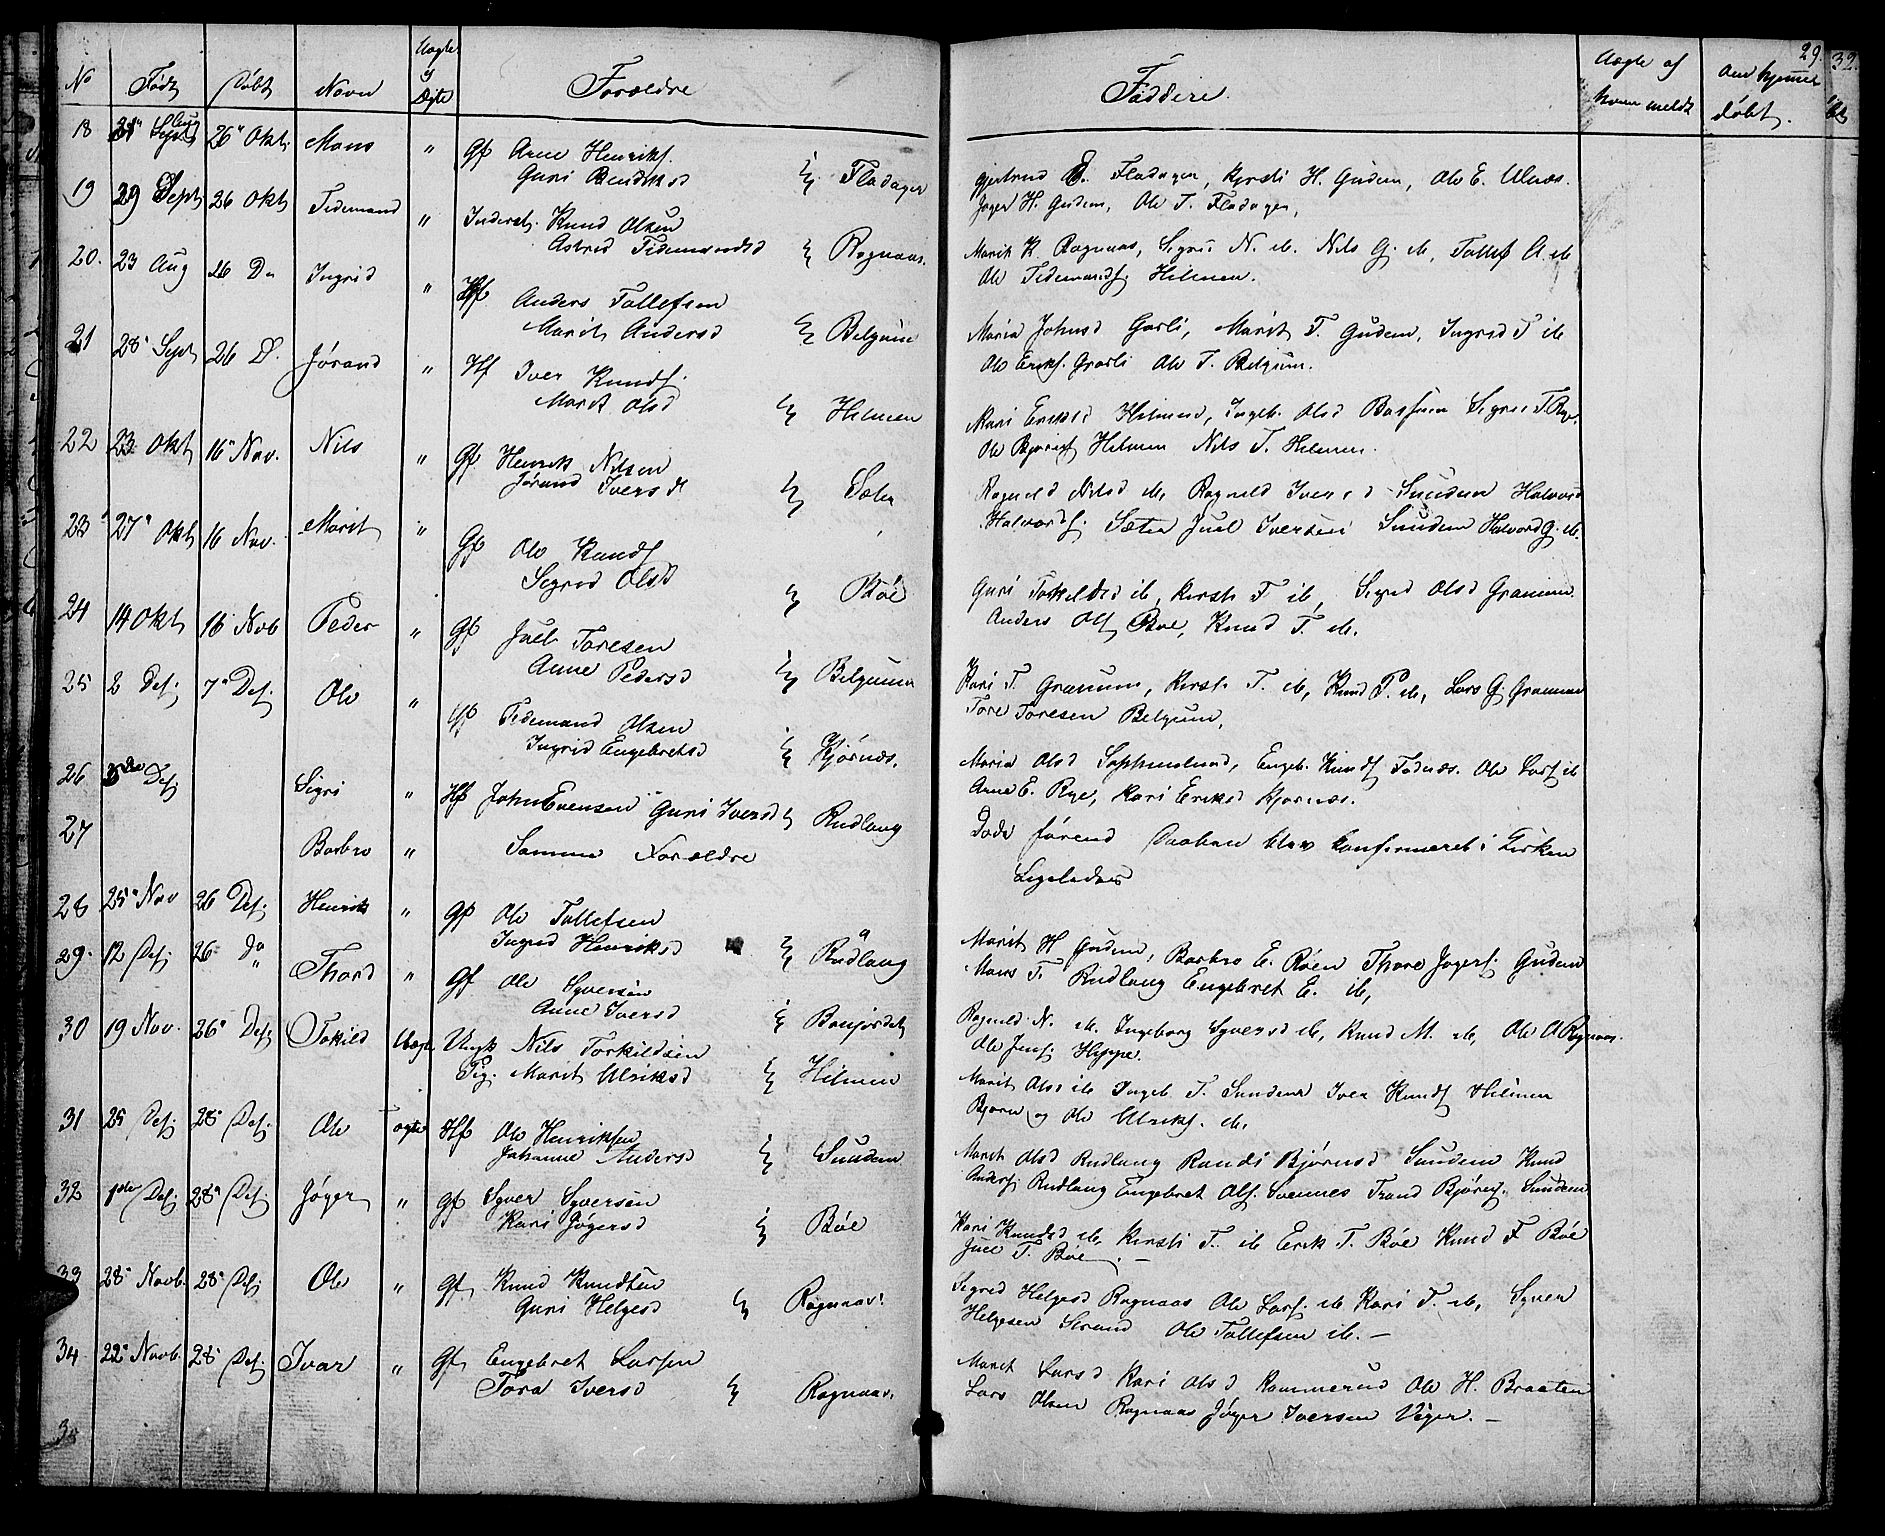 29. 32
No Født Døbt Navn Uægte Ægte Forældre Faddere. Uægte af hvem meldt døbt.
18 31 Aug 26 Okt. Mons " Gf Arne Henriks. Fladager
Guri Bendiksd
Gjertrud E. Fladager, Kjersti H. Gudem, Ole E. Ulnæs.
Jøger H. Gudem, Ole T. Fladager,
19 29 Sept 26 Okt Tidemand " Inderst. Knud Olsen
Astrid Tidemandsd Rognaas.
Marit K. Rognaas, Sigri N. ib. Nils G. ib, Tollef A. ib
Ole Tidemands. Hilmen.
20. 23 Aug 26 Do Ingrid " Hf Anders Tollefsen
Marit Andersd Belgum
Maria Johnsd Garli, Marit T. Gudem, Ingrid T ib
Ole Eriks. Garli Ole T. Belgum.
21 28 Sept 26 D. Jørand " Hf Iver Knuds.
Marit Olsd Hilmen
Mari Eriksd Hilmen, Ingeb. Olsd Sigri T. Rye,
Ole Bjørns Hilmen Nils T. Hilmen.
22 23 Okt 16 Nov. Nils " Gf Henrik Nilsen
Jørand Iversd Sæter
Ragnild Nilsd ib, Ragnild Iversd Sundem Halvord
Halvords. Sæter Juel Iversen Sundem Halvord G. ib.
23 27 Okt 16 Nov. Marit " Gf Ole Knuds
Sigrid Olsd Bøe
Guri Torkildsd ib, Kersti T ib, Sigrid Olsd Granum
Anders Ols Bøe, Knud T. ib.
24 14 Okt 16 Nov Peder " Gf Juel Toresen
Anne Pedersd Belgum
Kari T. Granum, Kersti T. ib, Knud P. ib, Lars G. Granum
Tore Toresen Belgum,
25 2 Des. 7 Des. Ole " Gf Tidemand Olsen
Ingrid Engebretsd Kjørnæs.
Maria Olsd Sophuslund, Engeb. Knuds Ole Lars ib
Arne E. Rye, Kari Eriksd Kjørnæs.
26 Des Sigri " Hf John Evensen Guri Iversd Rudlang
Døde førend Daaben blev konfirmeret i Kirken
27 Barbro " Samme Forældre
Ligeledes
28 25 Nov 26 Des. Henrik " Gf Ole Tollefsen
Ingrid Henriksd Rudlang
Marit H Gudem, Barbro E. Røen Thore Jøgers. Gudem
Mons T. Rudlang Engebret E. ib,
29. 12 Des. 26 Do Thord " Gf Ole Syversen
Anne Iversd Bønjordet
Ragnild N. ib. Ingeborg Syversd ib, Knud M. ib, Ole O Rognaas.
Ole Jens. Hippe.
30 19 Nov. 26 Des Tokild Uægte Ungk Nils Torkildsen
Pig. Marit Ulriksd Hilmen
Marit Olsd ib Ingeb T. Sundem Iver Knuds Hilmen
Bjørn og Ole Ulriks. ib,
31 25 Des. 28 Des. Ole ægte Hf Ole Henriksen
Johanne Andersd Sundem
Marit Olsd Rudlang Randi Bjørnsd Sundem Knud
Anders. Rudlang Engebret Ols. Svennes Trond Bjørns. Sundem
32 1ste Des. 28 Des. Jøger " Gf Syver Syversen
Kari Jøgersd Bøe
Kari Knudsd ib, Kersti T. ib Erik T. Bøe Knud F Bøe
Juel T. Bøe. —
33 28 Novb. 28 Des. Ole " Gf Knud Knudsen
Guri Helgesd Rognaas.
Sigrid Helgesd Rognaas Ole Lars. ib Kari T. ib, Syver
Helgesen Strand Ole Tollefsen ib. —
34 22 Novb. 28 Des. Ivar " Gf Engebret Larsen
Tora Iversd Rognaas.
Marit Larsd Kari Olsd Kammerud Ole H. Braaten
Lars Olsen Rognaas Jøger Iversen Viger. —